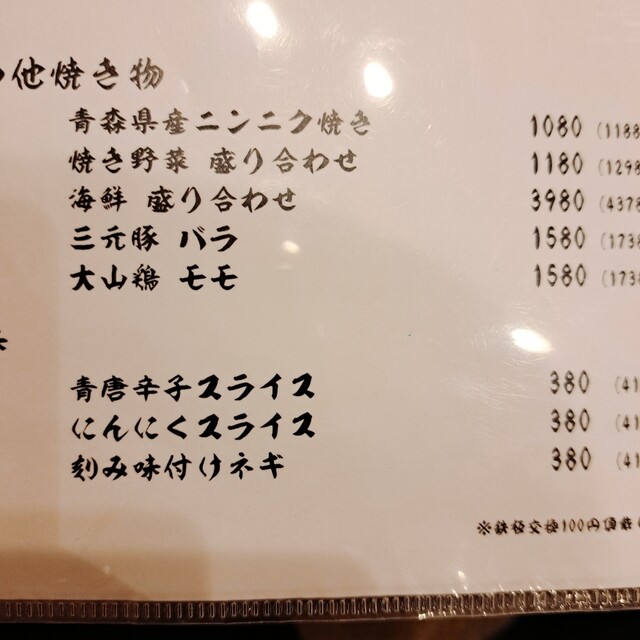 他焼き物
青森県産ニンニク焼き 1080 (1188
焼き野菜 盛り合わせ 1180 (1298
海鮮 盛り合わせ 3980 (4378
三元豚 バラ 1580 (1738
大山鶏 モモ 1580 (1738
青唐辛子スライス 380 (41
にんにくスライス 380 (41
刻み味付けネギ 380 (41
※鉄板交換100円頂戴